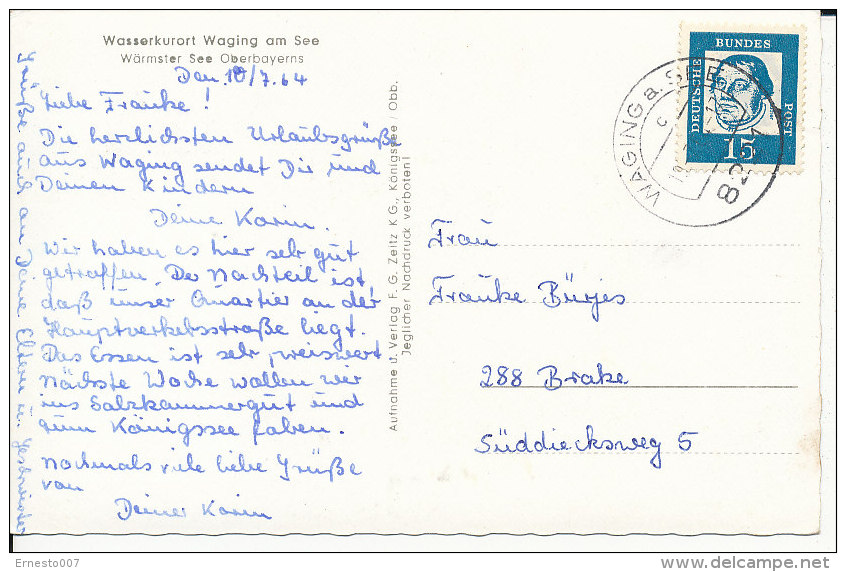 Wasserkurort Waging am See
Wärmster See Oberbayerns
Den 10/7.64
Liebe Frauke!
Die herzlichsten Urlaubsgrüße
aus Waging sendet Dir und
Deinen Kindern
Deine Karin.
Wir haben es hier sehr gut
getroffen. Der Nachteil ist,
daß unser Quartier an der
Hauptverkehrsstraße liegt.
Das Essen ist sehr preiswert.
Nächste Woche wollen wir
ins Salzkammergut und
zum Königssee fahren.
Nochmals viele liebe Grüße
von
Deiner Karin
Grüße auch an Deine Eltern u. Geschwister
Aufnahme u. Verlag F. G. Zeitz K G., Königssee / Obb.
Jeglicher Nachdruck verboten!
DEUTSCHE BUNDES POST
15
WAGING a. SEE
c
8221
Frau
Frauke Bürjes
288 Brake
Süddiecksweg 5
Ernesto007
www.delcampe.net